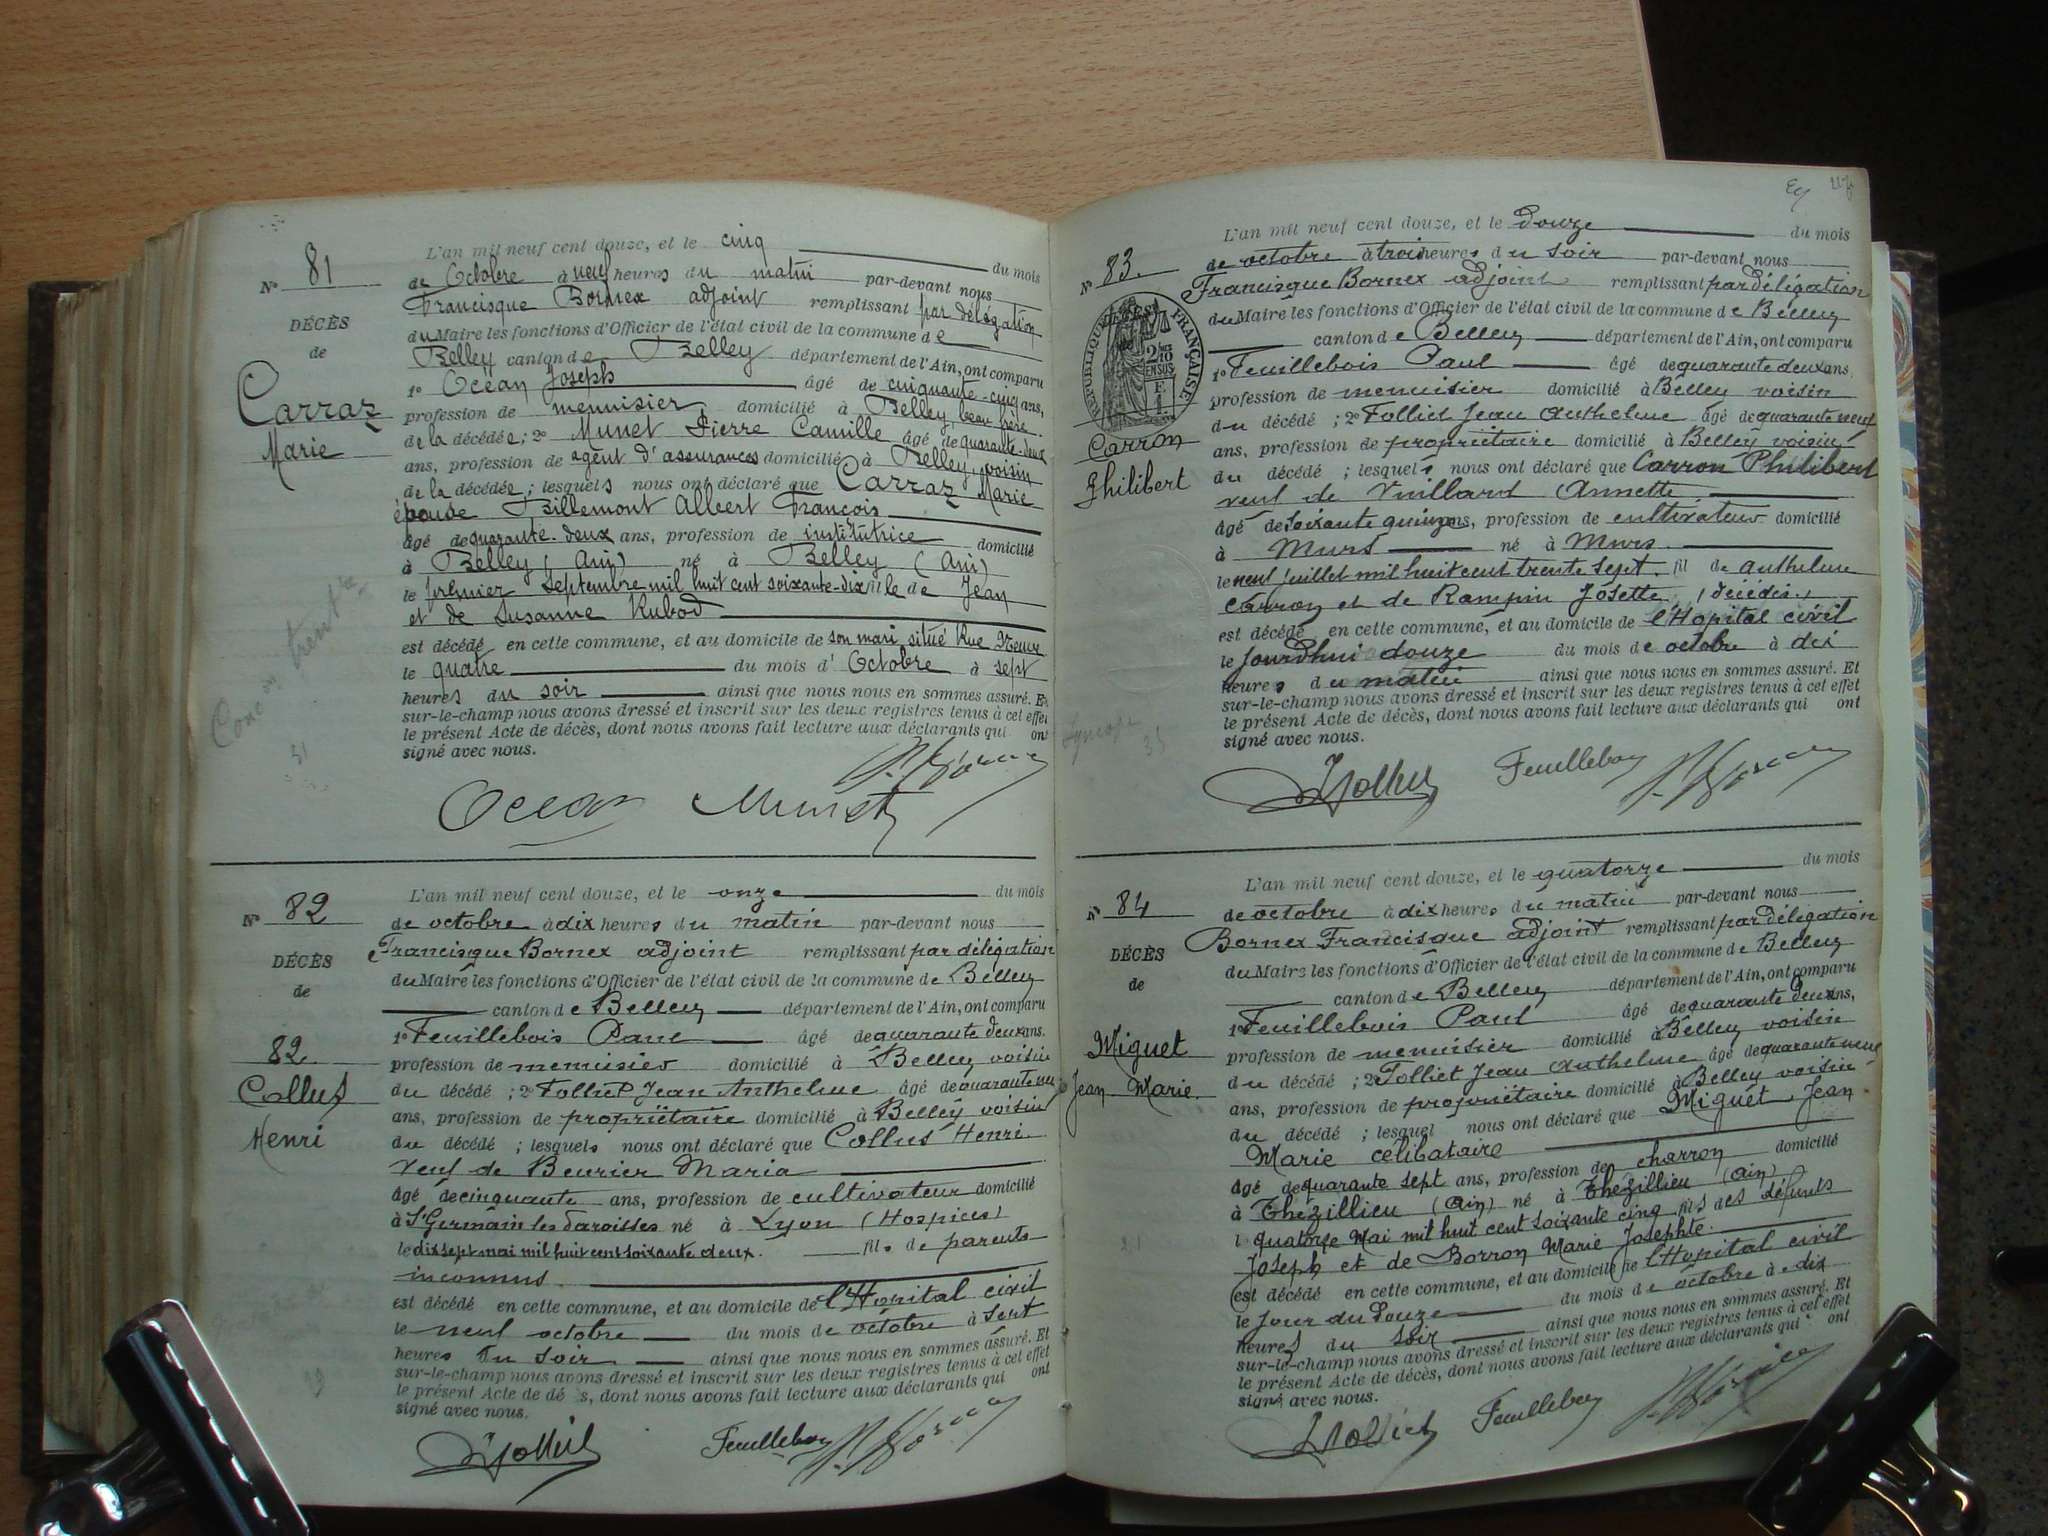 N° 81
DÉCÈS
de
Carraz
Marie
L'an mil neuf cent douze, et le cinq du mois
de Octobre à neuf heures du matin par-devant nous
Francisque Bornex adjoint remplissant par délégation
du Maire les fonctions d'Officier de l'état civil de la commune de
Belley canton de Belley département de l'Ain, ont comparu
1° Océan Joseph âgé de cinquante-cinq ans,
profession de menuisier domicilié à Belley, beau frère
de la décédée; 2° Munet Pierre Camille âgé de quarante-deux
ans, profession de agent d'assurances domicilié à Belley, voisin
de la décédée; lesquels nous ont déclaré que Carraz Marie
épouse Billemont Albert François
âgé de quarante-deux ans, profession de institutrice domicilié
à Belley (Ain) né à Belley (Ain)
le premier septembre mil huit cent soixante-dix fille de Jean
et de Susanne Rubod
est décédé en cette commune, et au domicile de son mari, situé Rue Neuve
le quatre du mois d'Octobre à sept
heures du soir ainsi que nous nous en sommes assuré. Et
sur-le-champ nous avons dressé et inscrit sur les deux registres tenus à cet effet
le présent Acte de décès, dont nous avons fait lecture aux déclarants qui ont
signé avec nous.
Océan Munet
N° 82
DÉCÈS
de
82
Collus
Henri
L'an mil neuf cent douze, et le onze du mois
de octobre à dix heures du matin par-devant nous
Francisque Bornex adjoint remplissant par délégation
du Maire les fonctions d'Officier de l'état civil de la commune de Belley
canton de Belley département de l'Ain, ont comparu
1° Feuillebois Paul âgé de quarante deux ans.
profession de menuisier domicilié à Belley voisin
du décédé; 2° Folliet Jean Anthelme âgé de quarante neuf
ans, profession de propriétaire domicilié à Belley voisin
du décédé; lesquels nous ont déclaré que Collus Henri
veuf de Beurier Maria
âgé de cinquante ans, profession de cultivateur domicilié
à St Germain les Paroisses né à Lyon (Hospices)
le dix sept mai mil huit cent soixante deux. fils de parents
inconnus
est décédé en cette commune, et au domicile de l'Hopital civil
le neuf octobre du mois de octobre à sept
heures du soir ainsi que nous nous en sommes assuré. Et
sur-le-champ nous avons dressé et inscrit sur les deux registres tenus à cet effet
le présent Acte de dé s, dont nous avons fait lecture aux déclarants qui ont
signé avec nous.
Folliet Feuillebois
N° 83
RÉPUBLIQUE FRANÇAISE
Carron
Philibert
L'an mil neuf cent douze, et le Douze du mois
de octobre à trois heures du soir par-devant nous
Francisque Bornex adjoint remplissant par délégation
du Maire les fonctions d'Officier de l'état civil de la commune de Belley
canton de Belley département de l'Ain, ont comparu
1° Feuillebois Paul âgé de quarante deux ans,
profession de menuisier domicilié à Belley voisin
du décédé; 2° Folliet Jean Anthelme âgé de quarante neuf
ans, profession de propriétaire domicilié à Belley voisin
du décédé; lesquels nous ont déclaré que Carron Philibert
veuf de Vuillard Annette
âgé de soixante quinze ans, profession de cultivateur domicilié
à Murs né à Murs
le neuf juillet mil huit cent trente sept. fil de Anthelme
Carron et de Rampin Josette, (décédés.)
est décédé en cette commune, et au domicile de l'Hopital civil
le jourdhui douze du mois de octobre à dix
heures du matin ainsi que nous nous en sommes assuré. Et
sur-le-champ nous avons dressé et inscrit sur les deux registres tenus à cet effet
le présent Acte de décès, dont nous avons fait lecture aux déclarants qui ont
signé avec nous.
Folliet Feuillebois
N° 84
DÉCÈS
de
Miguet
Jean Marie
L'an mil neuf cent douze, et le quatorze du mois
de octobre à dix heures du matin par-devant nous
Bornex Francisque adjoint remplissant par délégation
du Maire les fonctions d'Officier de l'état civil de la commune de Belley
canton de Belley département de l'Ain, ont comparu
1° Feuillebois Paul âgé de quarante deux ans,
profession de menuisier domicilié à Belley voisin
du décédé; 2° Folliet Jean Anthelme âgé de quarante neuf
ans, profession de propriétaire domicilié à Belley voisin
du décédé; lesquel nous ont déclaré que Miguet Jean
Marie célibataire
âgé de quarante sept ans, profession de charron domicilié
à Thézillieu (Ain) né à Thézillieu (Ain)
l quatorze Mai mil huit cent soixante cinq fils des défunts
Joseph et de Borron Marie Josephte.
est décédé en cette commune, et au domicile de l'Hopital civil
le jour du Douze du mois de octobre à dix
heures du soir ainsi que nous nous en sommes assuré. Et
sur-le-champ nous avons dressé et inscrit sur les deux registres tenus à cet effet
le présent Acte de décès, dont nous avons fait lecture aux déclarants qui ont
signé avec nous.
Folliet Feuillebois